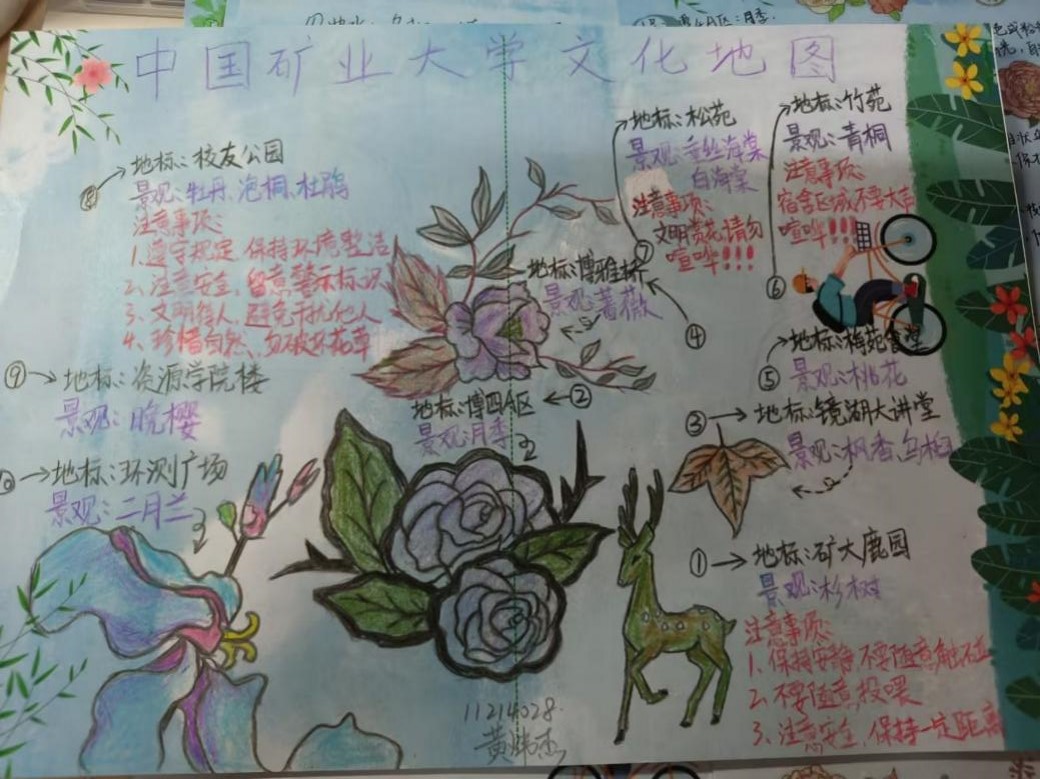 中国矿业大学文化地图
⑧→地标：校友公园
景观：牡丹、泡桐、杜鹃
注意事项：
1、遵守规定、保持环境整洁
2、注意安全、留意警示标识
3、文明待人、避免干扰他人
4、珍惜自然、勿破坏花草
⑨→地标：资源学院楼
景观：晚樱
→地标：环测广场
景观：二月兰
地标：松苑
景观：垂丝海棠
白海棠
注意事项：
文明赏花、请勿
喧哗！！！
⑦
地标：竹苑
景观：青桐
注意事项：
宿舍区域不要大声
喧哗！！！
⑥
地标：博雅桥
景观：蔷薇
④
地标：梅苑食堂
⑤
景观：桃花
地标：博四A区←②
景观：月季
③→地标：镜湖大讲堂
景观：枫香、乌桕
①→地标：矿大鹿园
景观：杉树
注意事项：
1、保持安静、不要随意触碰
2、不要随意投喂
3、注意安全、保持一定距离
11214028
黄